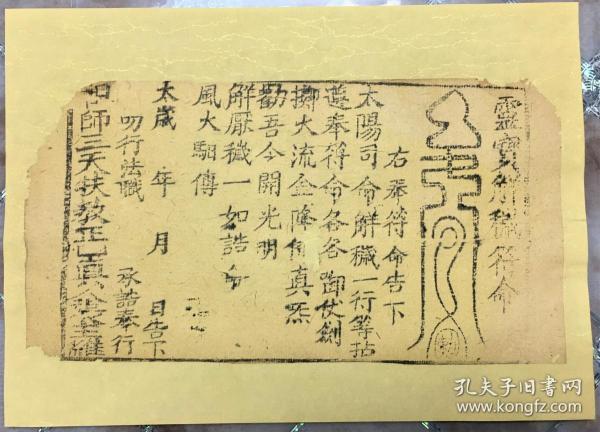 靈寶解穢符命
右奉符命告下
太陽司命解穢一行等拈
遵奉符命各各御仗劍
擲火流金降眞炁
勸吾今開光明
解厭穢一如誥命
風火駟傳
太歲 年 月 日告下
叨行法職 承誥奉行
師三天扶教正一眞
孔夫子旧书网
www.kongfz.com